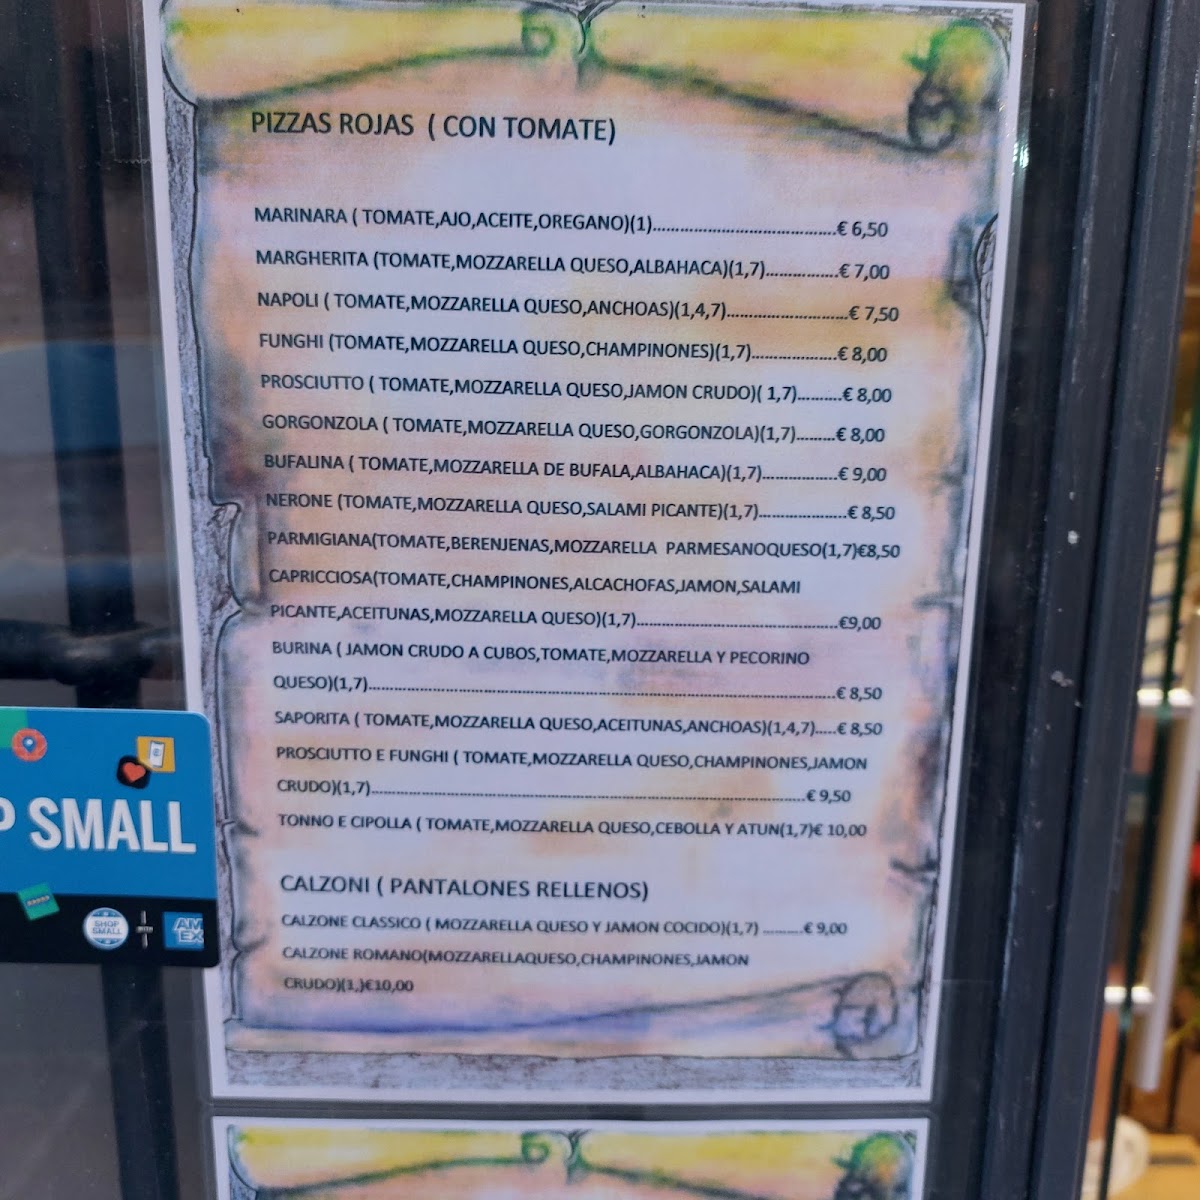 PIZZAS ROJAS ( CON TOMATE)
MARINARA ( TOMATE,AJO,ACEITE,OREGANO)(1)..........................................€ 6,50
MARGHERITA (TOMATE,MOZZARELLA QUESO,ALBAHACA)(1,7).................€ 7,00
NAPOLI ( TOMATE,MOZZARELLA QUESO,ANCHOAS)(1,4,7)............................€ 7,50
FUNGHI (TOMATE,MOZZARELLA QUESO,CHAMPINONES)(1,7)....................€ 8,00
PROSCIUTTO ( TOMATE,MOZZARELLA QUESO,JAMON CRUDO)( 1,7)..........€ 8,00
GORGONZOLA ( TOMATE,MOZZARELLA QUESO,GORGONZOLA)(1,7).........€ 8,00
BUFALINA ( TOMATE,MOZZARELLA DE BUFALA,ALBAHACA)(1,7)..................€ 9,00
NERONE (TOMATE,MOZZARELLA QUESO,SALAMI PICANTE)(1,7)....................€ 8,50
PARMIGIANA(TOMATE,BERENJENAS,MOZZARELLA PARMESANOQUESO(1,7)€8,50
CAPRICCIOSA(TOMATE,CHAMPINONES,ALCACHOFAS,JAMON,SALAMI
PICANTE,ACEITUNAS,MOZZARELLA QUESO)(1,7)...............................................€9,00
BURINA ( JAMON CRUDO A CUBOS,TOMATE,MOZZARELLA Y PECORINO
QUESO)(1,7)..............................................................................................................€ 8,50
SAPORITA ( TOMATE,MOZZARELLA QUESO,ACEITUNAS,ANCHOAS)(1,4,7).....€ 8,50
PROSCIUTTO E FUNGHI ( TOMATE,MOZZARELLA QUESO,CHAMPINONES,JAMON
CRUDO)(1,7).......................................................................................................€ 9,50
TONNO E CIPOLLA ( TOMATE,MOZZARELLA QUESO,CEBOLLA Y ATUN(1,7)€ 10,00
CALZONI ( PANTALONES RELLENOS)
CALZONE CLASSICO ( MOZZARELLA QUESO Y JAMON COCIDO)(1,7) ..........€ 9,00
CALZONE ROMANO(MOZZARELLAQUESO,CHAMPINONES,JAMON
CRUDO)(1,)€10,00
P SMALL
SHOP
SMALL
AM
EX